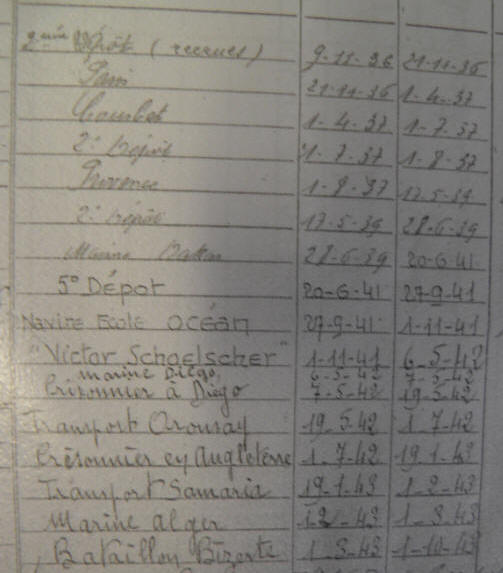 2ème Dépôt (recrues) 9-11-36 21-11-36
Paris 21-11-36 1-4-37
Courbet 1-4-37 1-7-37
2e Dépôt 1-7-37 1-8-37
Provence 1-8-37 17.5-39
2e Dépôt 17-5-39 28-6-39
Marine Dakar 28-6-39 20-6-41
5° Dépot 20-6-41 27-9-41
Navire Ecole OCÉAN 27-9-41 1-11-41
"Victor Schoelscher" 1-11-41 6-5-42
marine Diégo 6-5-42 7-5-42
Prisonnier à Diégo 7-5-42 19-5-42
Transport Oronsay 19-5-42 1-7-42
Prisonnier en Angleterre 1-7-42 19.1-43
Transport Samaria 19-1-43 1-2-43
Marine Alger 1-2-43 1-3-43
Bataillon Bizerte 1-3-43 1-10-43